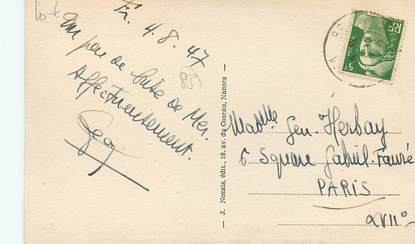 Fr. 4.8.47
Un peu de brise de Mer.
Affectueusement.
Geo
85
J. Nozais, édit., 18, av. du Coteau, Nantes
RF
Madlle Gen. Herbay
6 Square Gabriel-Fauré
PARIS
XVII°